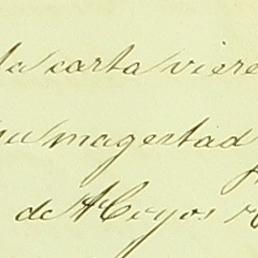 la carta viere
su magestad
de Hoyos